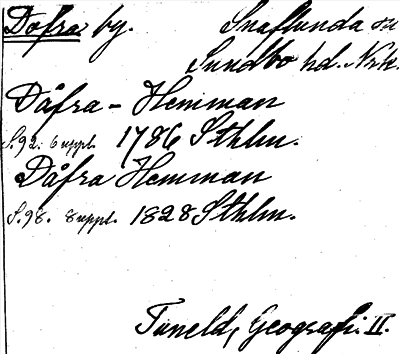 Dofra by. Snaflunda sn
Sundbo hd. Nrk.
Dåfra - Hemman
S. 92. 6 uppl. 1786 Sthlm.
Dåfra Hemman
S. 98. 8 uppl. 1828 Sthlm.
Tuneld, Geografi. II.